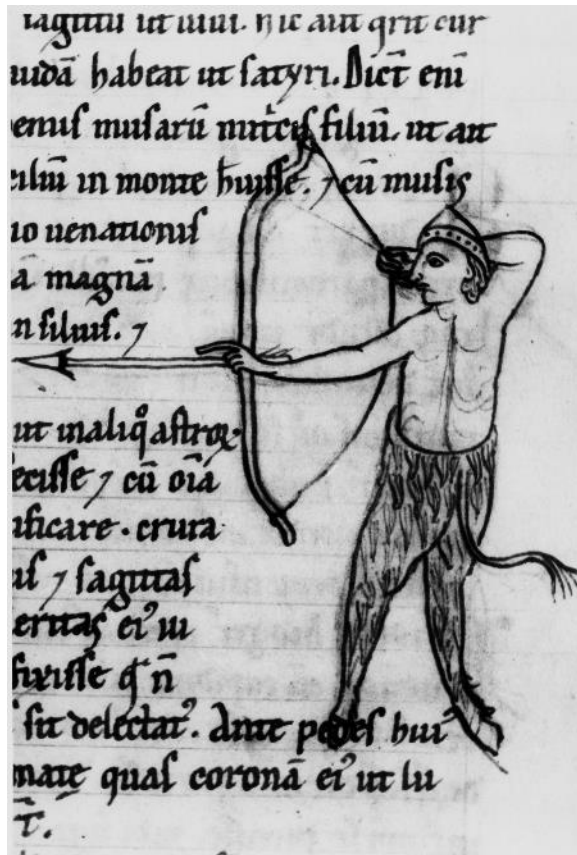 sagittis ut
caudā habeat ut satyri. Dicт̄ enī
musarū nutcis filiū. ut ait
in monte h̄uisse. ⁊ cū musis
uenationis
a magnā
n siluis. ⁊
ut inaliq̊ astroꝝ
fecisse ⁊ cū oīa
ificare. crura
⁊ sagittas
eritas eiꝰ in
fixisse qͥ n̄
sit delectatꝰ. Ante pedes huiꝰ
quas coronā eiꝰ ut lu